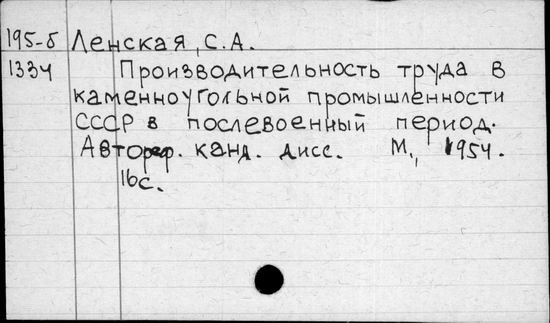 195-б Ленская, С.А.
1334 Производительность труда в
каменноугольной промышленности
СССР в послевоенный период.
Автореф. канд. дисс. М., 1954.
16с.